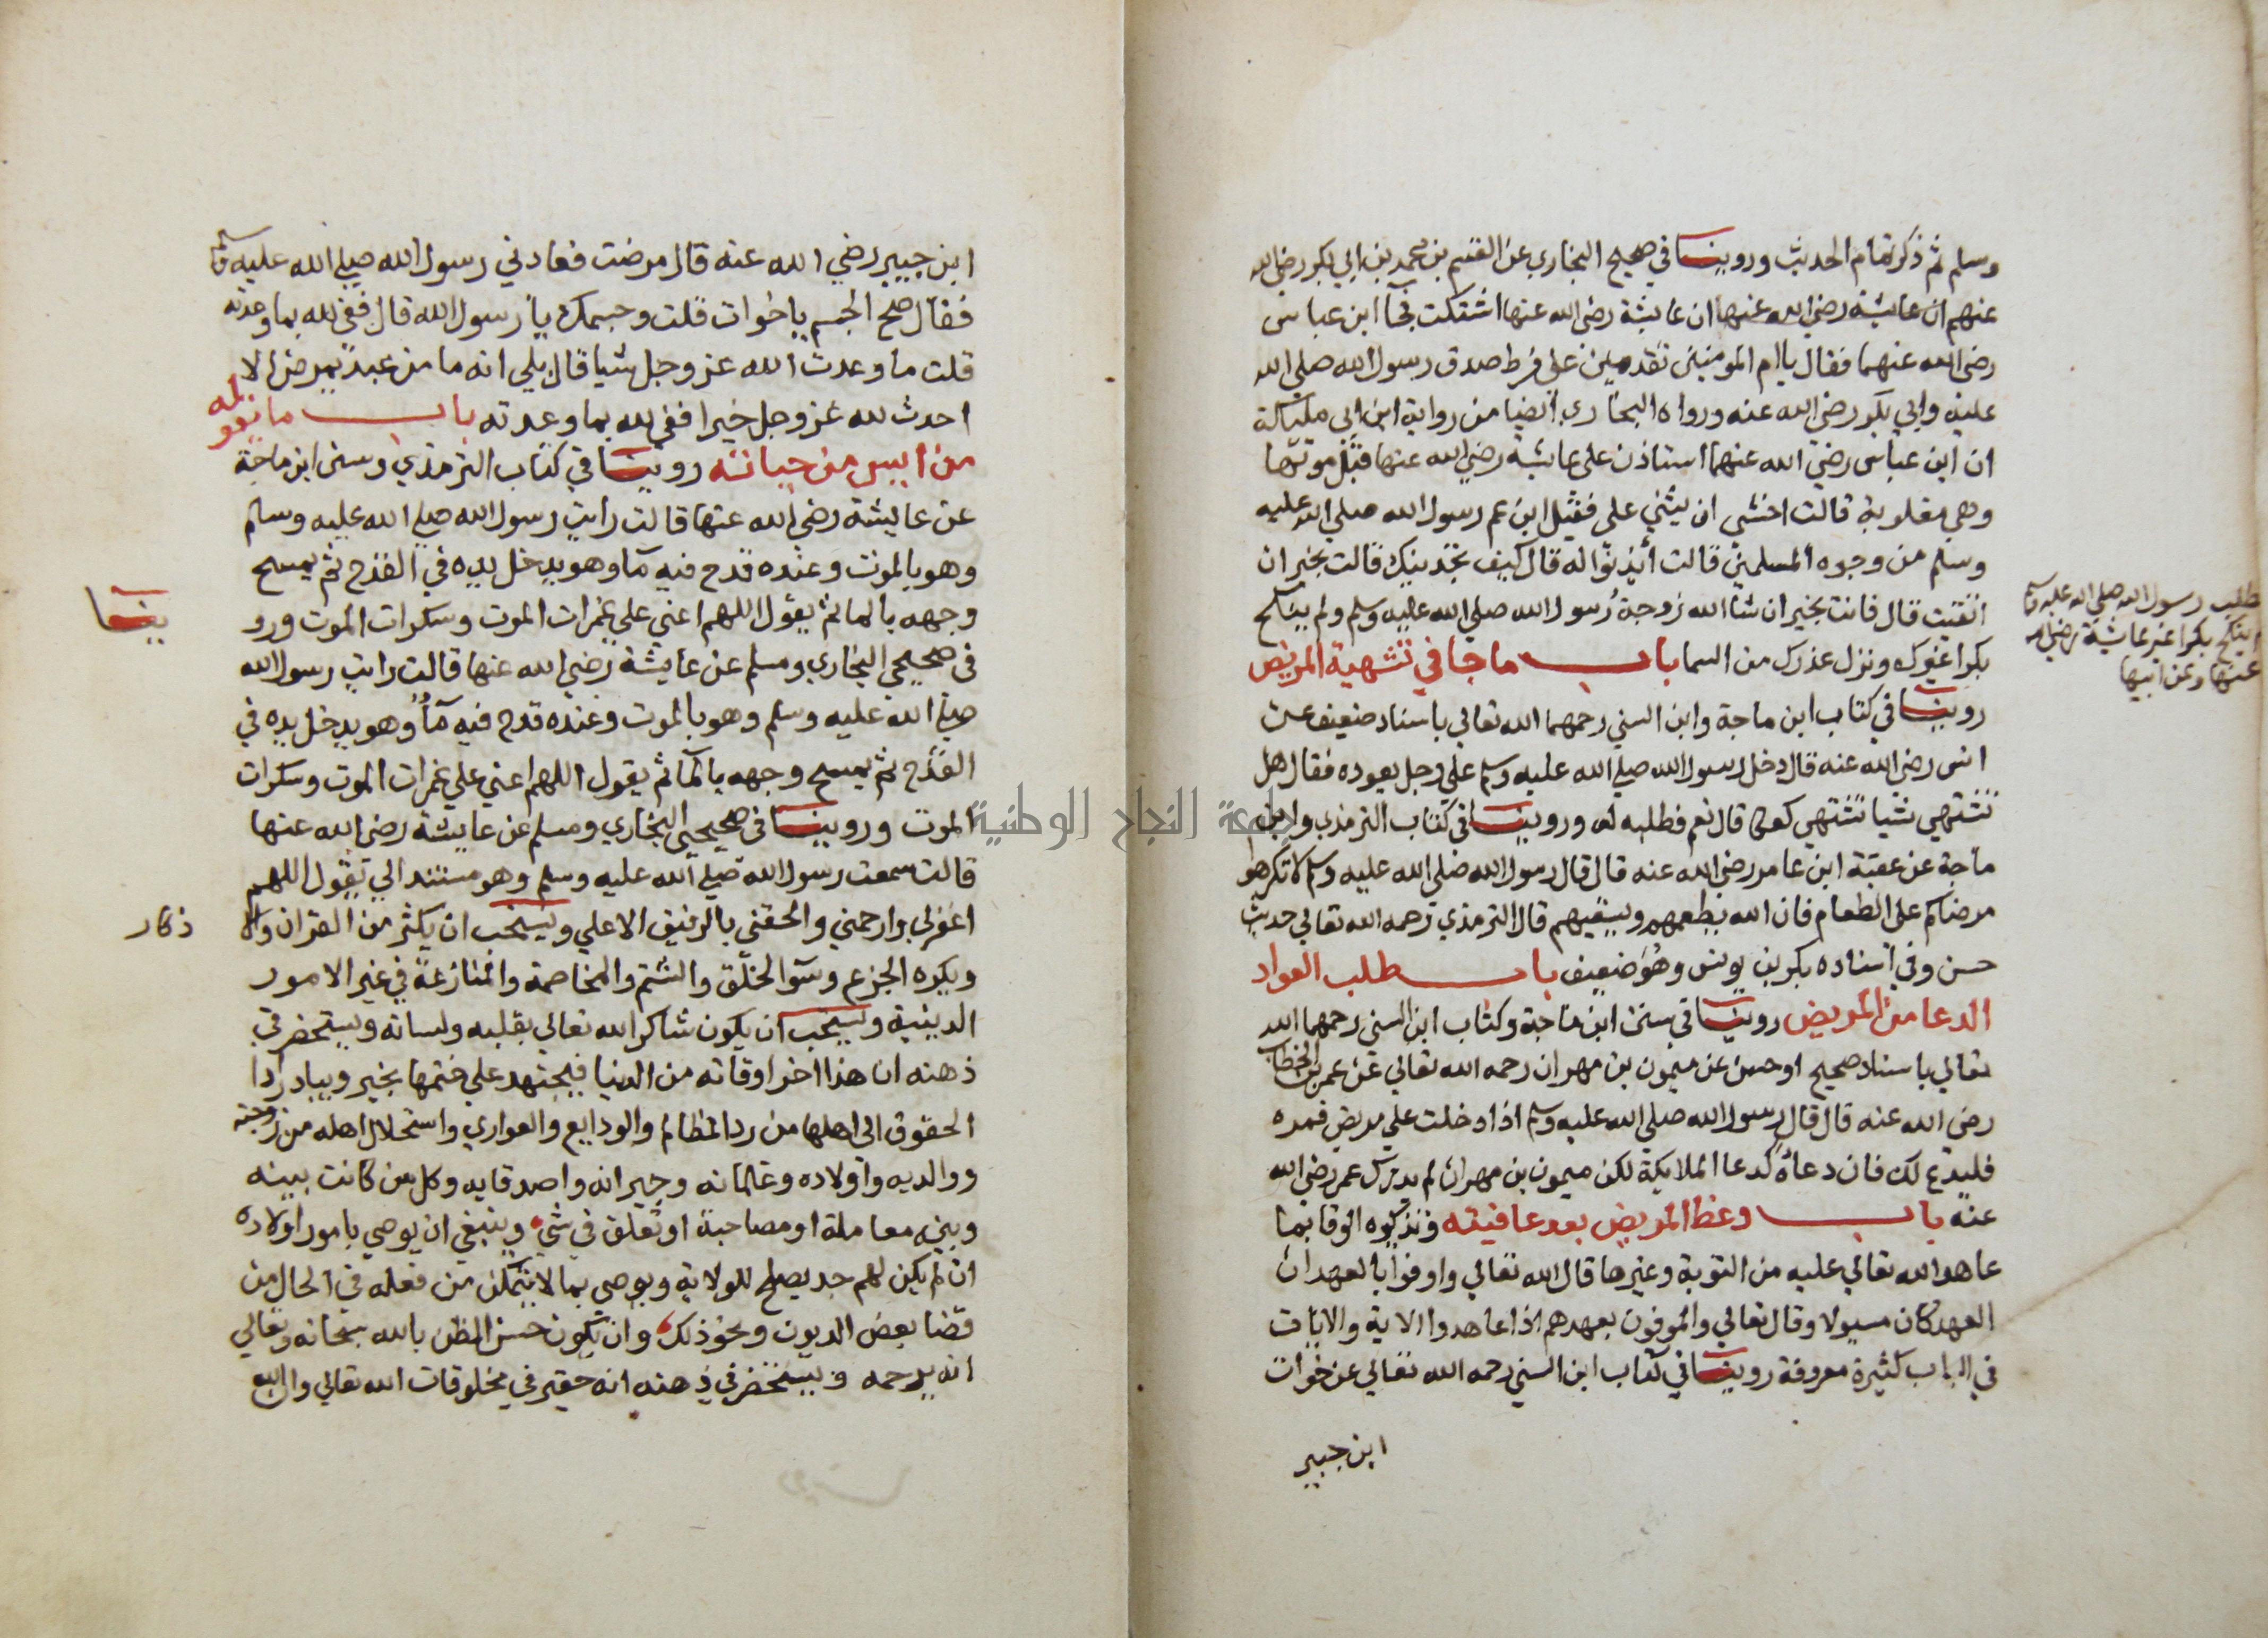 وسلم ثم ذكر تمام الحديث وروينا في صحيح البخاري عن القسم بن محمد بن ابي بكر رضي الله
عنهم ان عايشة رضي الله عنها ان عايشة رضي الله عنها اشتكت فجآ ابن عباس
رضي الله عنهما فقال يا ام المومنين تقدمين على فرط صدق رسول الله صلي الله
عليه وابي بكر رضي الله عنه ورواه البخاري ايضا من رواية ابن ابي مليكة
ان ابن عباس رضي الله عنهما استاذن على عايشة رضي الله عنها قبل موتها
وهي مغلوبة قالت اخشى ان يثني علي فقيل ابن عم رسول الله صلي الله عليه
وسلم من وجوه المسلمين قالت أيذنوا له قال كيف تجدينك قالت بخير ان
اتقيت قال فانت بخير ان شا الله زوجة رسول الله صلي الله عليه وسلم ولم ينكح
بكرا غيرك ونزل عذرك من السما باب ما جا في تشهية المريض
روينا في كتاب ابن ماجة وابن السني رحمهما الله تعالي باسناد ضعيف عن
انس رضي الله عنه قال دخل رسول الله صلي الله عليه وسلم على رجل يعوده فقال هل
تشتهي شيا تشتهي كعكا قال نعم فطلبه له وروينا في كتاب الترمذي وابن
ماجة عن عقبة ابن عامر رضي الله عنه قال قال رسول الله صلي الله عليه وسلم لا تكرهوا
مرضاكم على الطعام فان الله يطعمهم ويسقيهم قال الترمذي رحمه الله تعالي حديث
حسن وفي اسناده بكر بن يونس وهو ضعيف باب طلب العواد
الدعا من المريض روينا في سنن ابن ماجة وكتاب ابن السني رحمهما الله
تعالي باسناد صحيح او حسن عن ميمون بن مهران رحمه الله تعالي عن عمر بن الخطاب
رضي الله عنه قال قال رسول الله صلي الله عليه وسلم اذا دخلت علي مريض فمره
فليدع لك فان دعاه كدعا الملايكة لكن ميمون بن مهران لم يدرك عمر رضي الله
عنه باب وعظ المريض بعد عافيته وتذكيره الوفا بما
عاهد الله تعالي عليه من التوبة وغيرها قال الله تعالي واوفوا بالعهد ان
العهد كان مسيولا وقال تعالي والموفون بعهدهم اذا عاهدوا الاية والايات
في الباب كثيرة معروفة روينا في كتاب ابن السني رحمه الله تعالي عن خوات
ابن جبير
مطلب رسول الله صلي الله عليه وسلم
لم ينكح بكرا غير عايشة رضي الله
عنها وعن ابيها
ابن جبير رضي الله عنه قال مرضت فعادني رسول الله صلي الله عليه وسلم
فقال صح الجسم يا خوات قلت وجسمك يا رسول الله قال ففِ لله بما وعدته
قلت ما وعدت الله عز وجل شيا قال بلي انه ما من عبد يمرض الا
احدث لله عز وجل خيرا ففِ لله بما وعدته باب ما يقوله
من ايس من حياته روينا في كتاب الترمذي وسنن ابن ماجة
عن عايشة رضي الله عنها قالت رايت رسول الله صلي الله عليه وسلم
وهو بالموت وعنده قدح فيه مآ وهو يدخل يده في القدح ثم يمسح
وجهه بالما ثم يقول اللهم اعني علي غمرات الموت وسكرات الموت ورو
ينا
في صحيحي البخاري ومسلم عن عايشة رضي الله عنها قالت رايت رسول الله
صلي الله عليه وسلم وهو بالموت وعنده قدح فيه مآ وهو يدخل يده في
القدح ثم يمسح وجهه بالمآ ثم يقول اللهم اعني علي غمرات الموت وسكرات
الموت وروينا في صحيحي البخاري ومسلم عن عايشة رضي الله عنها
قالت سمعت رسول الله صلي الله عليه وسلم وهو مستند الي يقول اللهم
اغفر لي وارحمني والحقني بالرفيق الاعلي ويستحب ان يكثر من القران والا
ذكار
ويكره الجزع وسوآ الخلق والشتم والمخاصمة والمنازعة في غير الامور
الدينية ويستحب ان يكون شاكر الله تعالي بقلبه ولسانه ويستحضر في
ذهنه ان هذا اخر اوقاته من الدنيا فيجتهد علي ختمها بخير ويبادر ادا
الحقوق الى اهلها من رد المظالم والودايع والعواري واستحلال اهله من زوجته
ووالديه واولاده وغلمانه وجيرانه واصدقايه وكل من كانت بينه
وبينه معاملة او مصاحبة او تعلق في شي وينبغي ان يوصي بامور اولاده
ان لم يكن لهم جد يصلح للولاية ويوصي بما لا يتمكن من فعله في الحال من
قضا بعض الديون ونحو ذلك وان يكون حسن الظن بالله سبحانه وتعالي
انه يرحمه ويستحضر في ذهنه انه حقير في مخلوقات الله تعالي وان الله
جامعة النجاح الوطنية